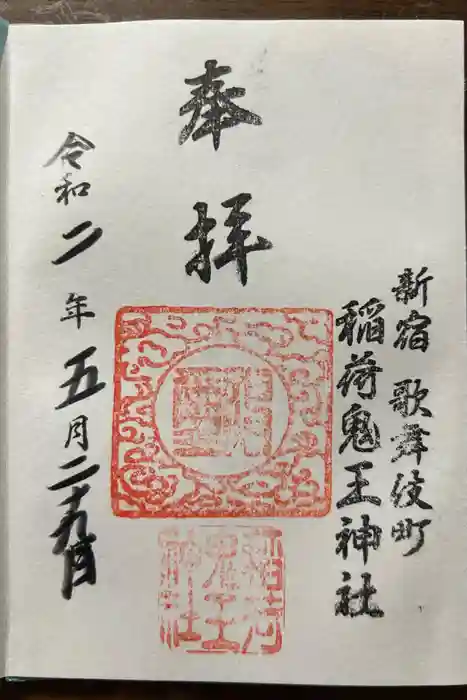 新宿 歌舞伎町
稲荷鬼王神社
奉拝
令和二年五月二十九日
稲荷
鬼王
神社